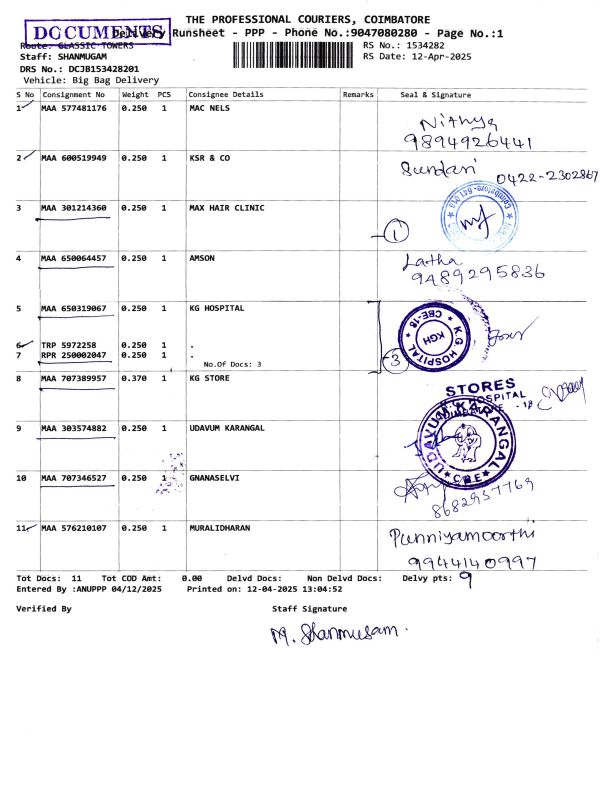 THE PROFESSIONAL COURIERS, COIMBATORE
DOCUMENTS
Delivery Runsheet - PPP - Phone No.:9047080280 - Page No.:1
Route: CLASSIC TOWERS
RS No.: 1534282
Staff: SHANMUGAM
RS Date: 12-Apr-2025
DRS No.: DCJB153428201
Vehicle: Big Bag Delivery
S No Consignment No Weight PCS Consignee Details Remarks Seal & Signature
1 MAA 577481176 0.250 1 MAC NELS
Nithya
9894926441
2 MAA 600519949 0.250 1 KSR & CO
Sundari 0422-2302867
3 MAA 301214360 0.250 1 MAX HAIR CLINIC
1
4 MAA 650064457 0.250 1 AMSON
Latha
9489295836
5 MAA 650319067 0.250 1 KG HOSPITAL
KG HOSPITAL
CBE-18
KGH
6 TRP 5972258 0.250 1 .
7 RPR 250002047 0.250 1 .
No.Of Docs: 3
3
8 MAA 707389957 0.370 1 KG STORE
STORES
HOSPITAL
9 MAA 303574882 0.250 1 UDAVUM KARANGAL
UDAVUM KARANGAL
CBE
10 MAA 707346527 0.250 1 GNANASELVI
8682957769
11 MAA 576210107 0.250 1 MURALIDHARAN
Punniyamoorthi
9944140997
Tot Docs: 11 Tot COD Amt: 0.00 Delvd Docs: Non Delvd Docs: Delvy pts: 9
Entered By :ANUPPP 04/12/2025 Printed on: 12-04-2025 13:04:52
Verified By Staff Signature
M. Shanmugam.